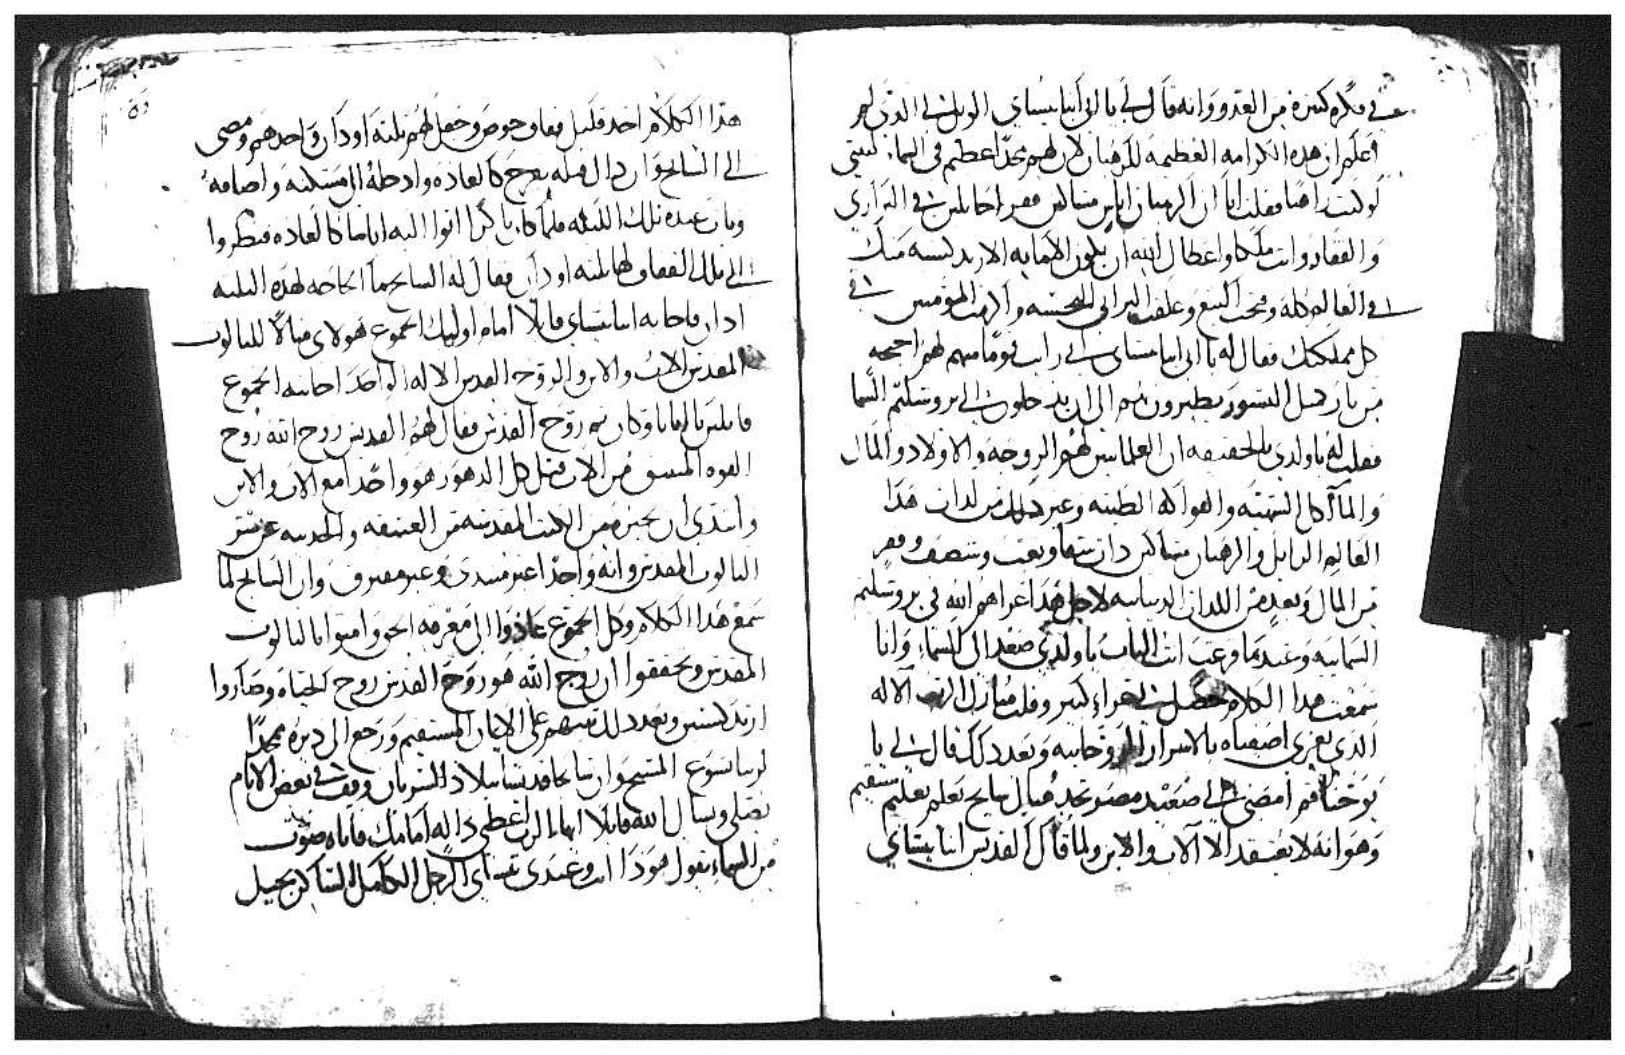 في فكره كثيرة من العدو وانه قال لي يا ابي انبا بيشاي الويل لي الذي لم
اعلم ان هذه الكرامه العظيمه للرهبان لان لهم مجدا عظيم في السما. ليتني
كنت راهبا فقلت انا ان الرهبان اناس مساكين فقرا جايلين في البراري
والقفار وانت ملكا واعطاك الله ان يكون الامانه الارتدكسيه منك
في العالم كله وفتحت البيع وغلقت البرابي النجسه والرب المؤمنين في
كل مملكتك فقال له يا ابي انبا بيشاي اني رايت قوما منهم لهم اجنحه
من نار مثل النسور يطيرون بهم الى ان يدخلون الي يروشليم السما
فقلت له يا ولدي بالحقيقه ان العلمانيين لهم الزوجه والاولاد والمال
والماكل الشهيه والفواكه الطيبه وغير ذلك من لذات هذا
العالم الزايل والرهبان مساكين دايما وتعب ونصف وفقر
من المال وبعد من اللذات الدنيانيه لاجل هذا عزاهم الله في يروشليم
السمايه وعندما فرغت انت الباب يا ولدي صعد الى السماء وانا
سمعت هذا الكلام حصل لي عزاء كبير وقلت مبارك الرب الاله
الذي يعزي اصفياه بالاسرار الروحانيه وبعد ذلك قال لي يا
يوحنا قم امضي الي صعيد مصر تجد هناك سايح يعلم تعليم مستقيم
وهو انه لا يعتقد الا الاب والابن ولما قال القديس انبا بيشاي
هذا الكلام اخذ قليل قفاف خوص وجعل لهم ثلثه اودان واحدهم ومضى
الي السايح وان ذاك قبله بفرح كالعاده وادخله الى مسكنه واضافه
وبات عنده تلك الليله فلما كان باكرا اتوا اليه اناسا كالعاده فنظروا
الي تلك القفاف لها ثلثه اودان فقال له السايح ما الحاجه لهذه الثلثه
اودان فاجابه انبا بيشاي قايلا امام اوليك الجموع هولاي مثالا للثالوت
المقدس الاب والابن والروح القدس الاله الواحد اجابته الجموع
قايلين يا ابانا وكان ثم روح القدس فقال لهم القديس روح الله روح
القوه المنبثق من الاب قبل كل الدهور وهو واحدا مع الاب والابن
وابتدى ان يخبره من الكتب المقدسه من العتيقه والحديثه عن سر
الثالوت المقدس وانه واحدا غير مبتدى وغير مفترق وان السايح لما
سمع هذا الكلام وكل الجموع عادوا الى معرفه الحق وامنوا بالثالوت
المقدس وتحققوا ان روح الله هو روح القدس روح الحياه وصاروا
ارتدكسيين وبعد ذلك ثبتهم على الايمان المستقيم ورجع الى ديره ممجدا
لربنا يسوع المسيح وان ابا مقديسا ببلاد السريان وقف في بعض الايام
يصلى ويسال الله قايلا ايها الرب اعطى داله امامك فاتاه صوت
من السماء يقول هوذا انت وعندي تساوي الرجل الكامل الساكن بجبل